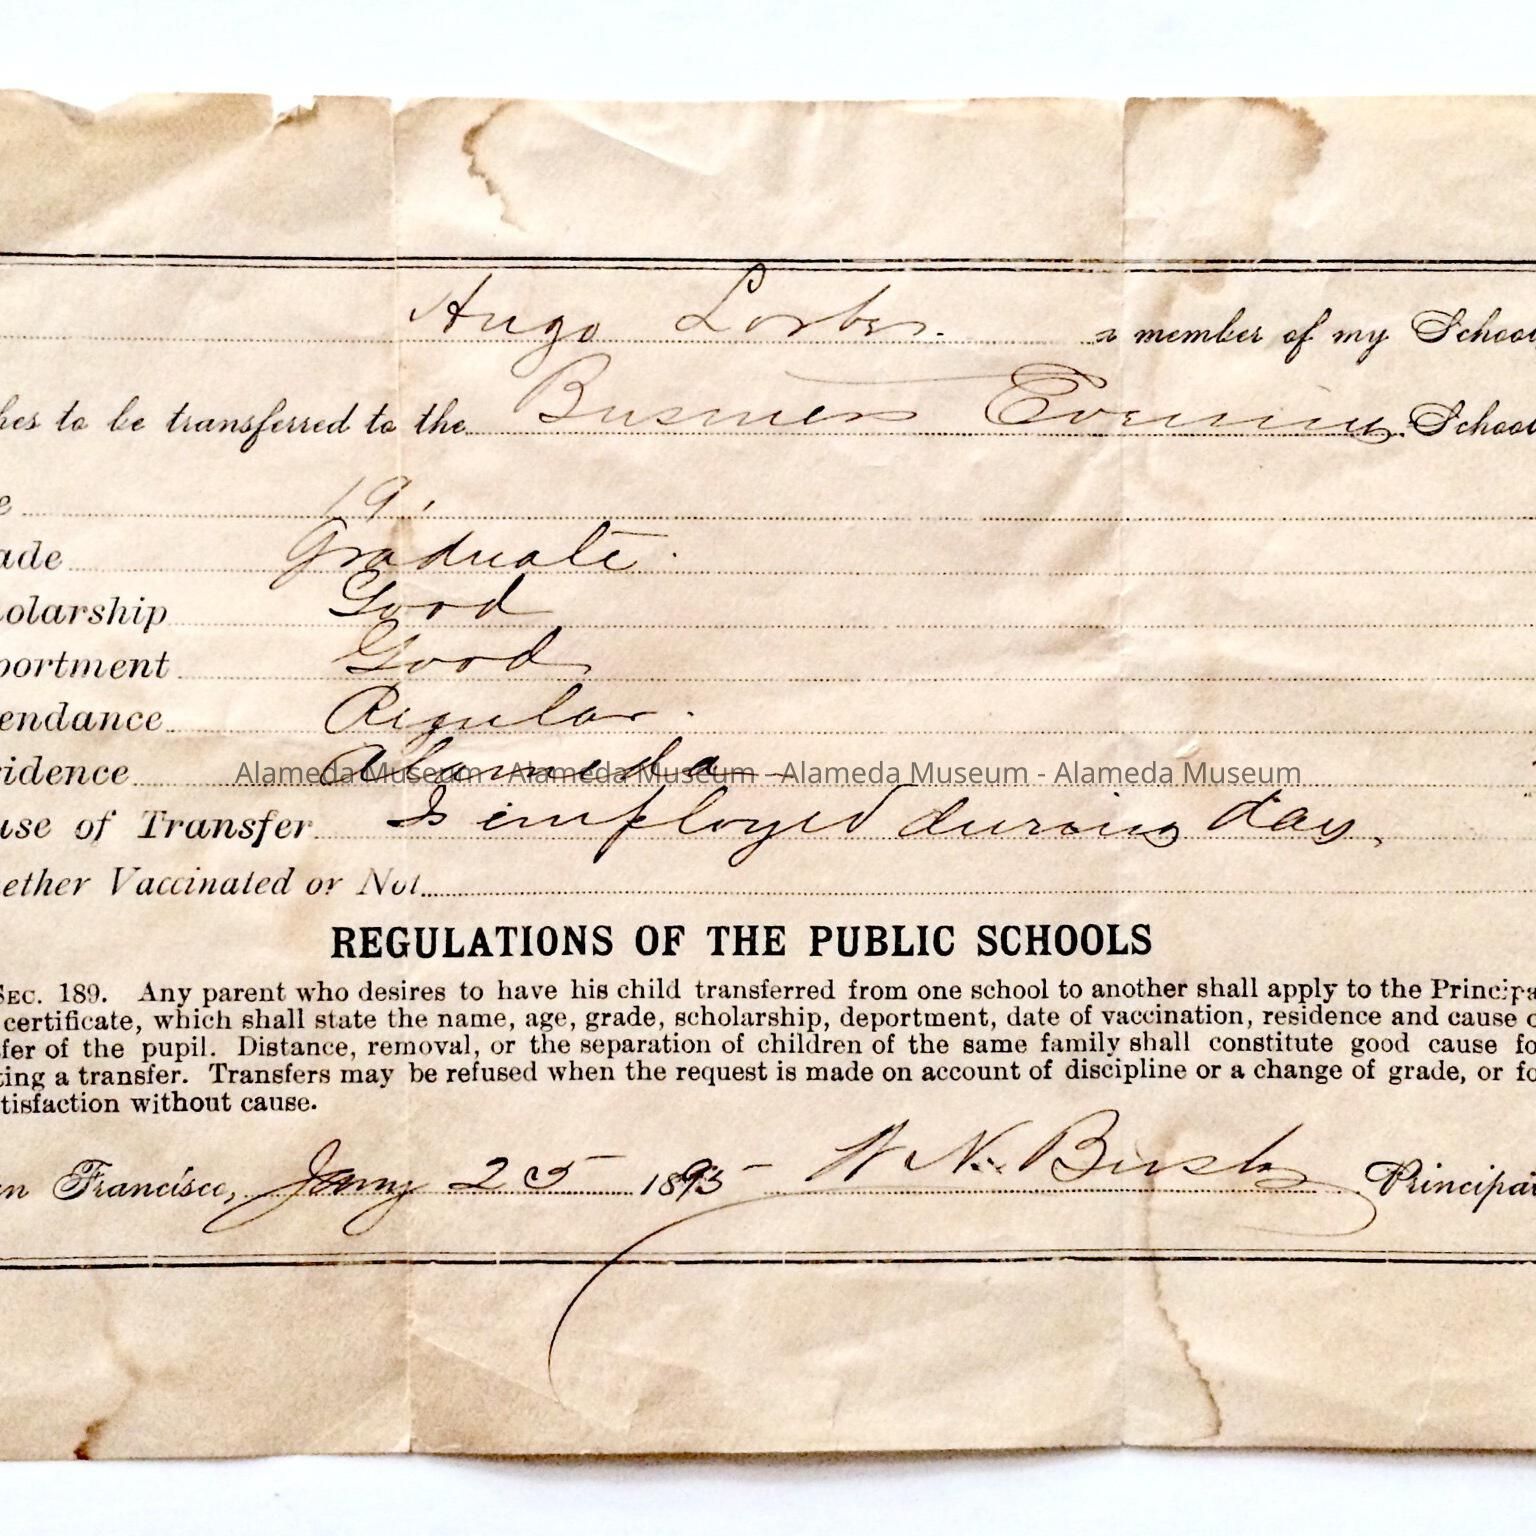 Hugo Lorber. a member of my School
hes to be transferred to the Business Evening School
e 19.
ade Graduate.
olarship Good
portment Good
endance Regular.
idence Alameda
Alameda Museum - Alameda Museum - Alameda Museum - Alameda Museum
use of Transfer Is employed during day.
ether Vaccinated or Not
REGULATIONS OF THE PUBLIC SCHOOLS
SEC. 189. Any parent who desires to have his child transferred from one school to another shall apply to the Principa
certificate, which shall state the name, age, grade, scholarship, deportment, date of vaccination, residence and cause o
fer of the pupil. Distance, removal, or the separation of children of the same family shall constitute good cause fo
ting a transfer. Transfers may be refused when the request is made on account of discipline or a change of grade, or fo
tisfaction without cause.
n Francisco, Jany 25 1893 W. N. Bush Principal